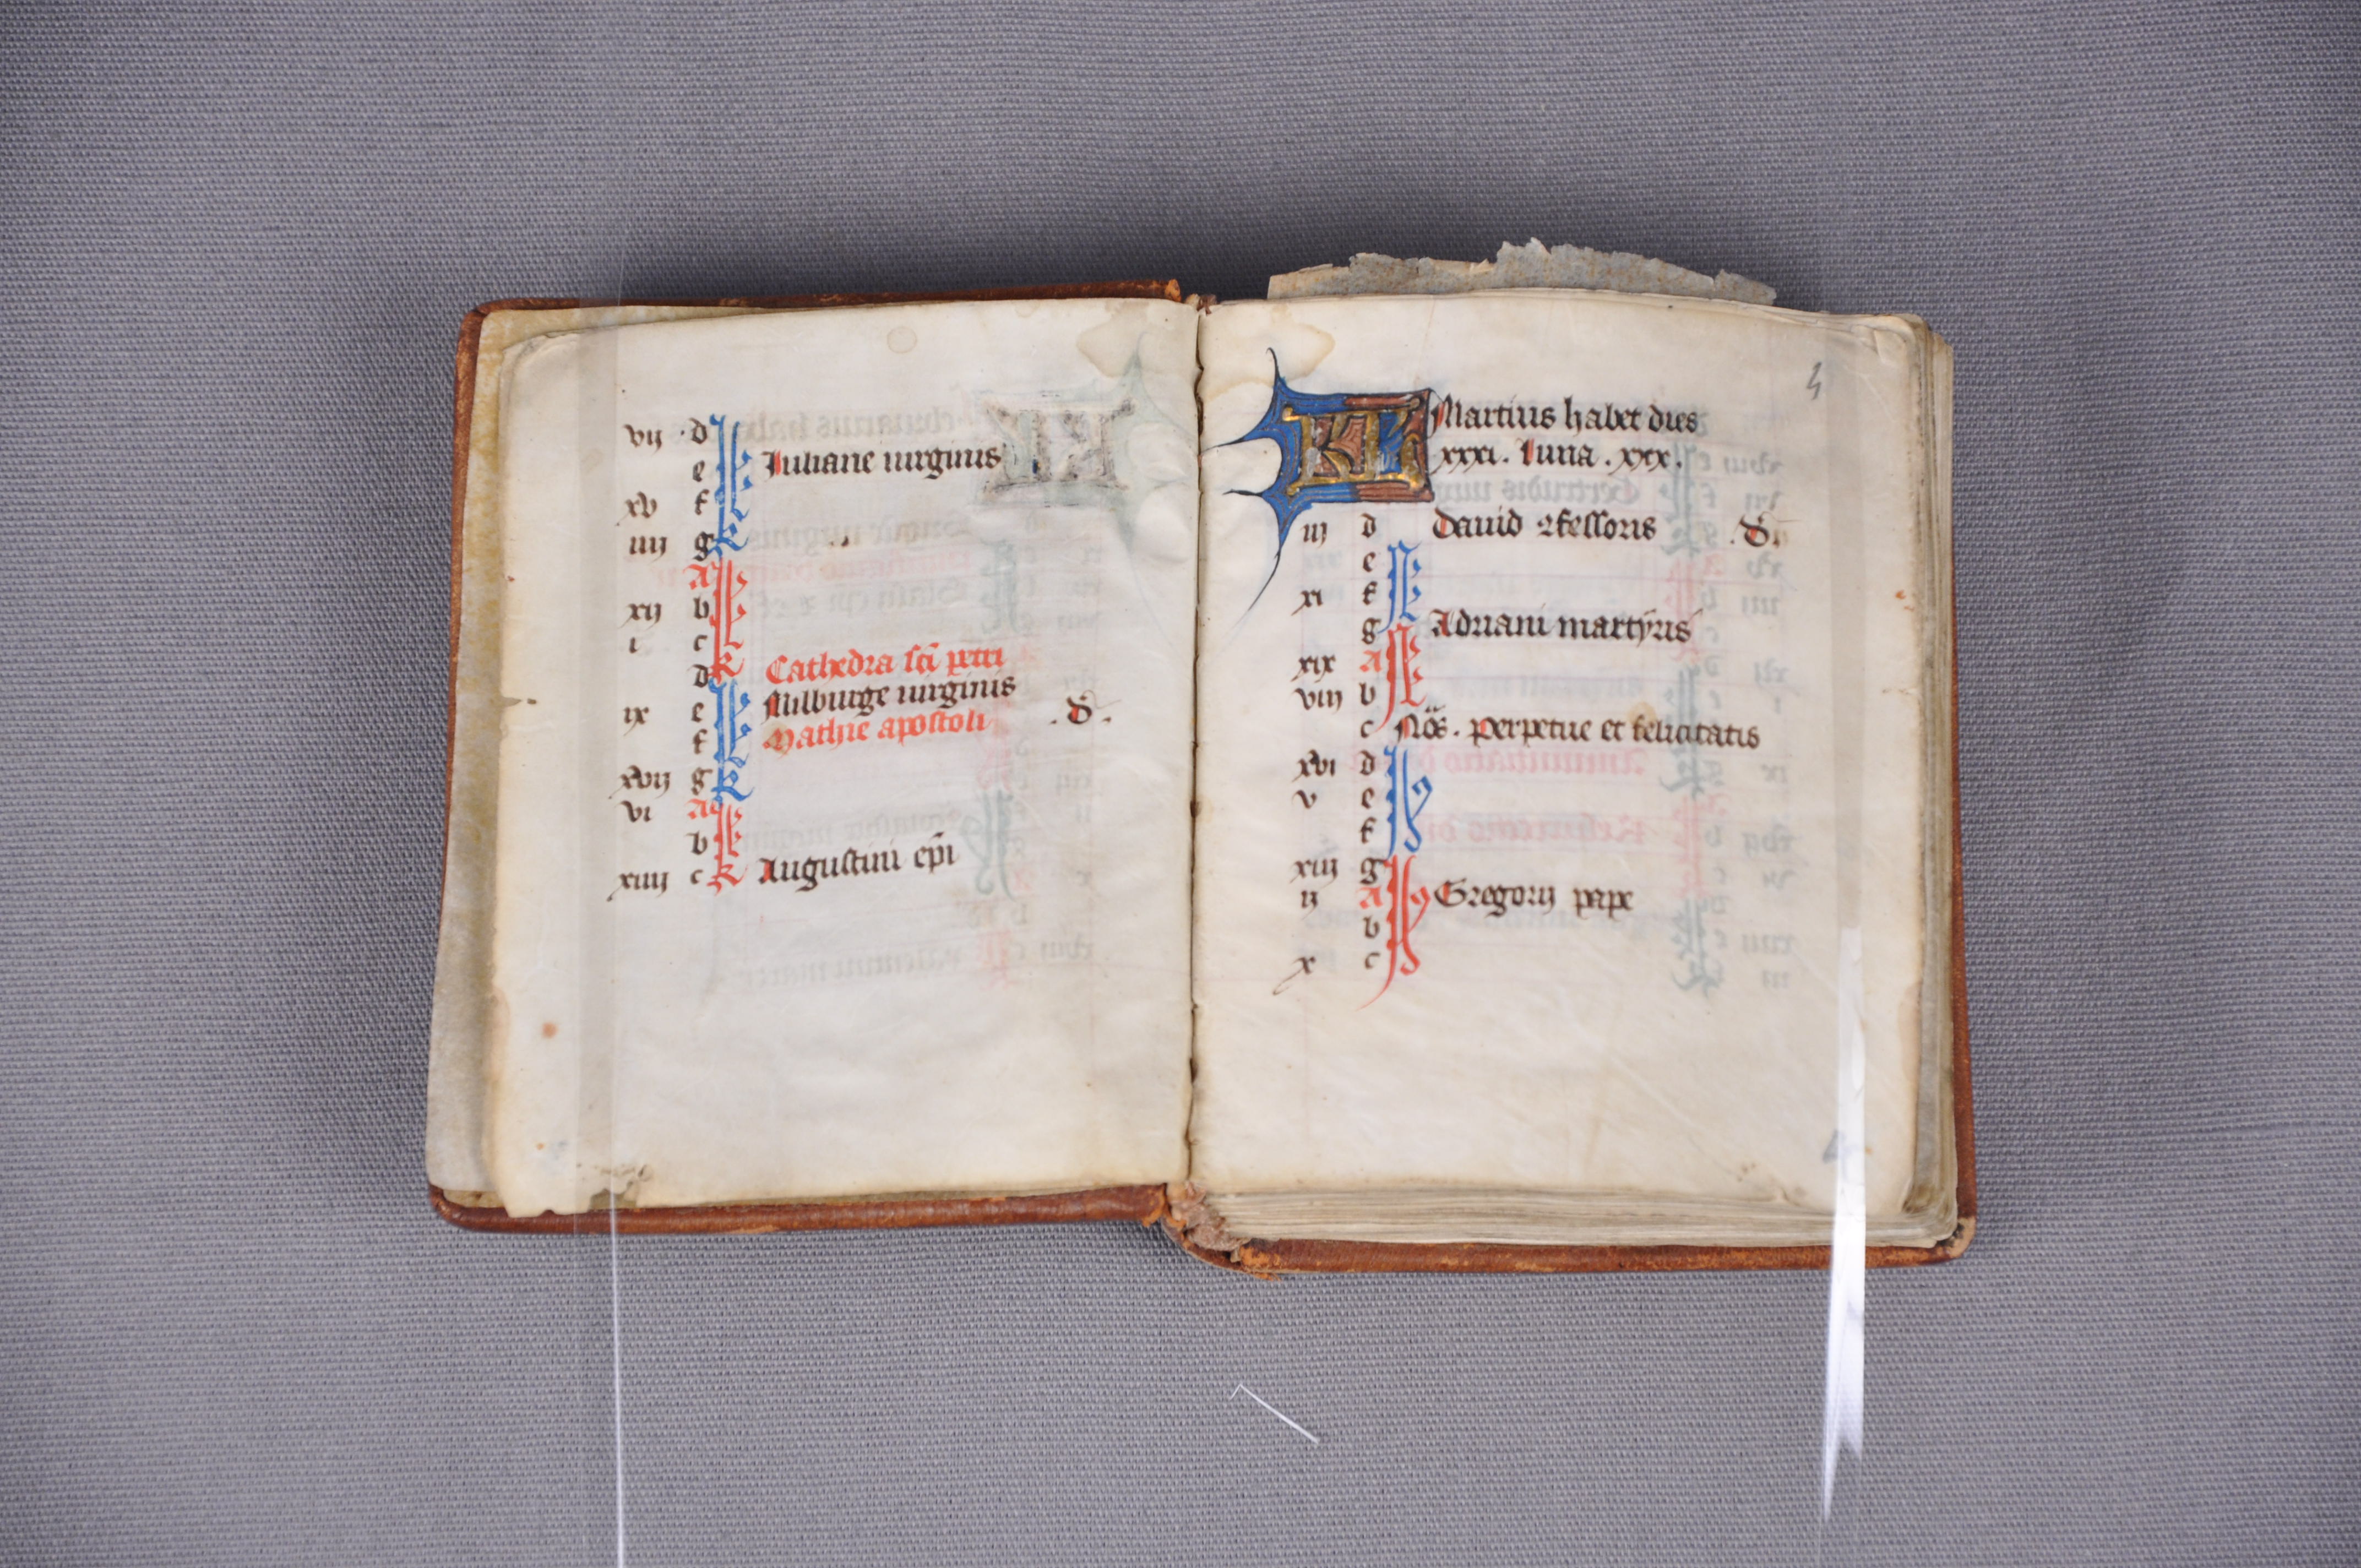 vij d kl
e Iuliane uirginis
xv f
iiij g kl
A kl
xij b
i c
d kl Cathedra sci petri
ix e Milburge uirginis
f Mathie apostoli .d.
xvij g kl
vi A kl
b
xiiij c kl Augustini epi
4
KL Martius habet dies
xxxi. luna. xxx.
iij d Dauid ꝯfessoris .d.
e
xi f
g Adriani martyris
xix A
viij b
c Nos. perpetue et felicitatis
xvi d
v e
f
xiij g
ij A Gregorij pape
b
x c